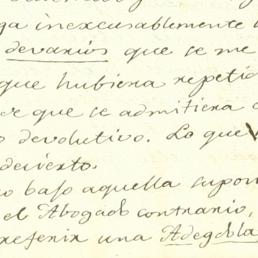 ga inexcusablemente
devarios que se me
que hubiera repeti
que se admitiera
devolutivo. Lo que
desierto.
bajo aquella supon
el Abogado contrario,
referir una